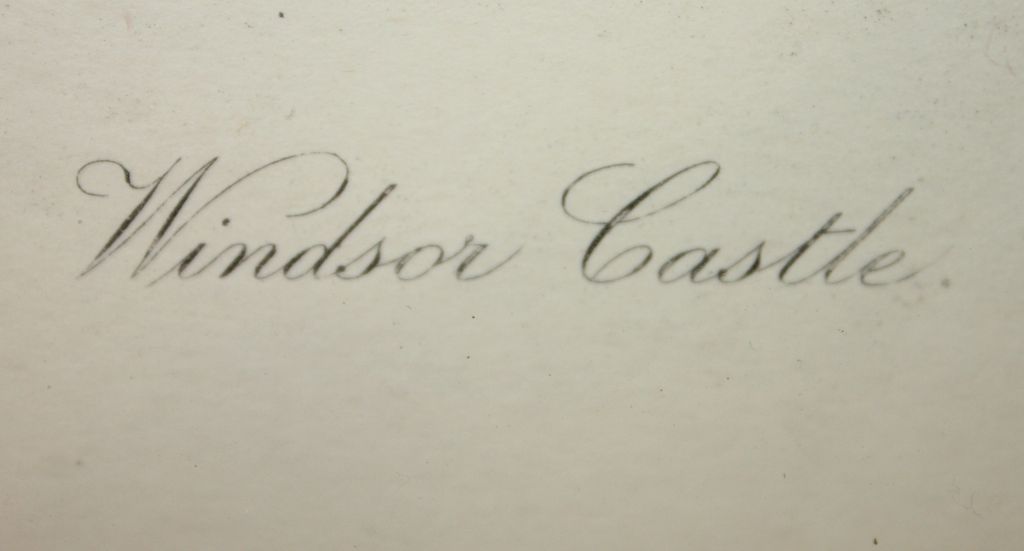 Windsor Castle.